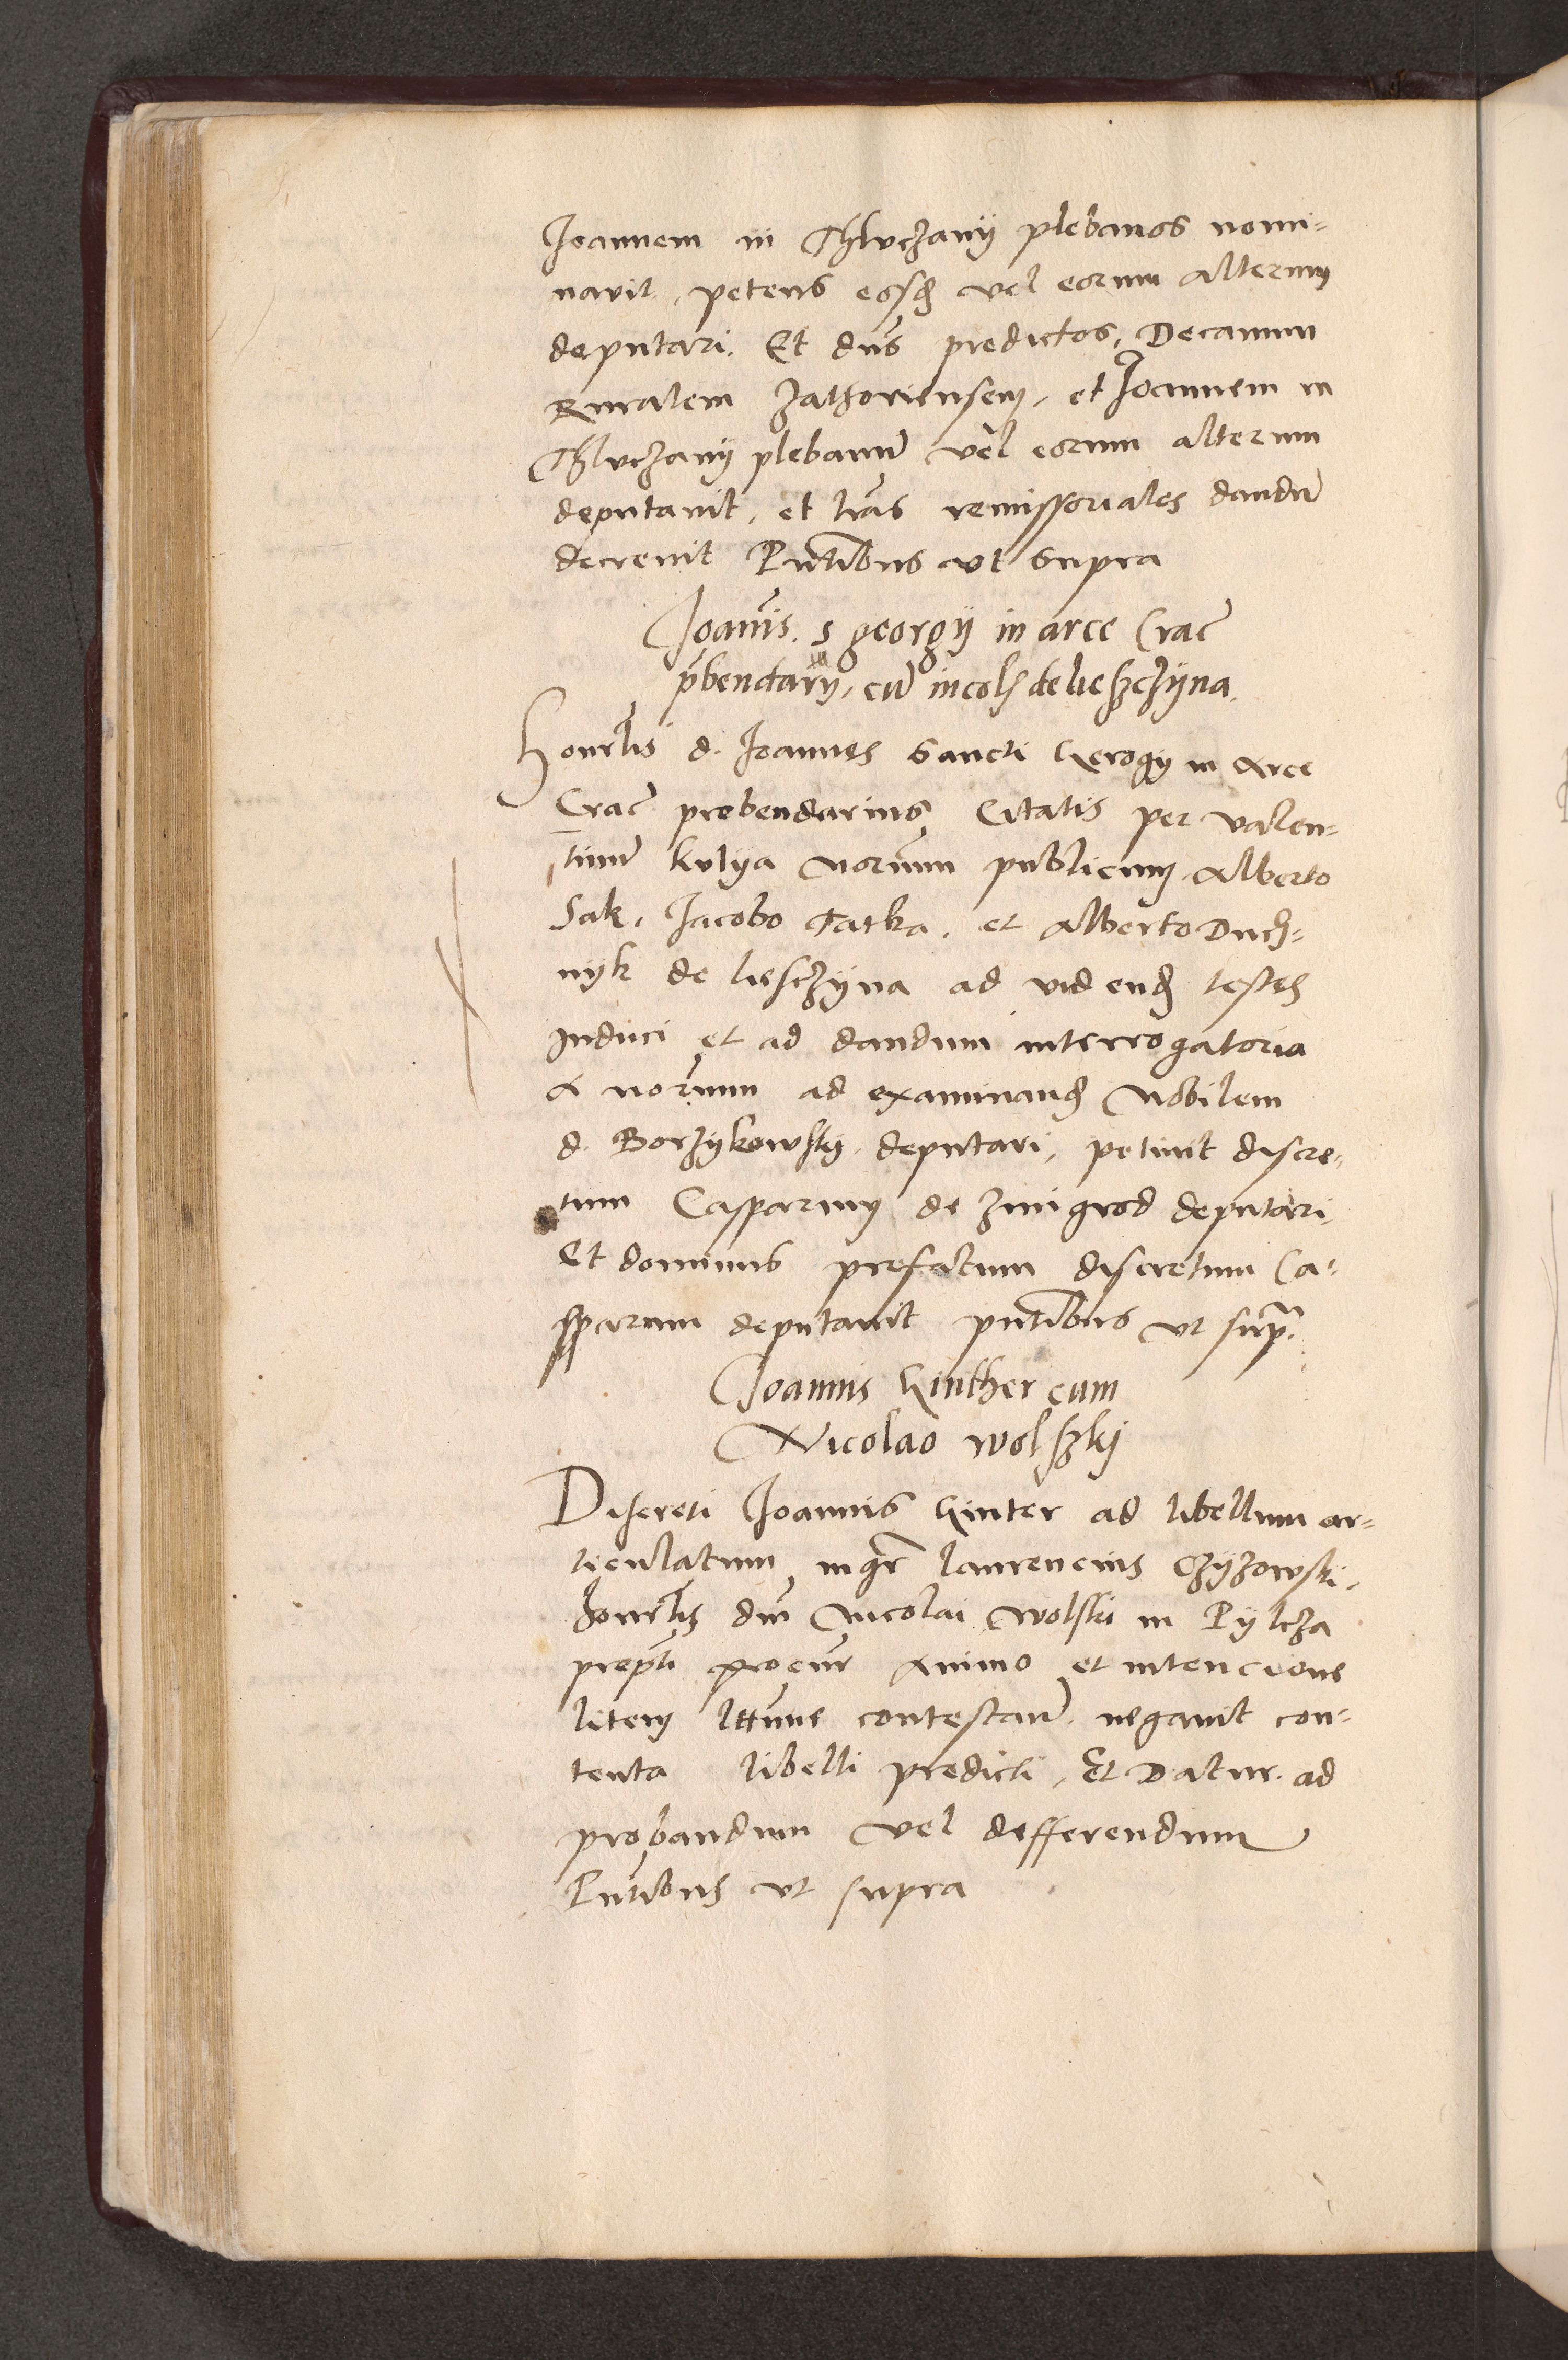 Joannem in Thlvczany plebanos nomi=
navit, petens eosd vel eorum alterum
deputari. Et dns predictos, Decanum
Ruralem Zathoriensem, et Joannem in
Thlvczany plebanu vel eorum alterum
deputauit, et lras remissoriales dandu
decreuit Pntibus vt supra
Joanis. s georgii in arce Crac
pbendarii, cu incolis de lieszczyna.
Honrlis d. Joannes Sancti Gerogii in Arce
Crac prebendarius, Citatis per valen=
tinu kulya norium publicum Alberto
Sak, Jacobo Fatka, et Alberto Duch=
nyk de liesczyna ad vidend testes
induci et ad dandum interrogatoria
a norium ad examinand Nobilem
d. Borzykowsky deputari, petiuit discre=
tum Casparum de Zmigrod deputari.
Et dominus prefatum discretum Ca=
sparum deputauit pntibus vt supra.
Joannis Ginther cum
Nicolao wolszky
Discreti Joannis Ginter ad libellum ar=
ticulatum mgr laurencius Czyzowski,
honrlis dni Nicolai Wolski in Pylcza
prepti procur Animo et intencione
litem lttime contestan negauit con=
tenta libelli predicti, Et Datur ad
probandum vel defferendum
Pntibus vt supra